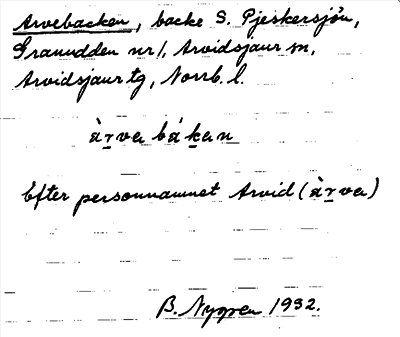 Arvebacken, backe S. Pjeskersjön,
Granudden nr 1, Arvidsjaur sn,
Arvidsjaur tg, Norrb. l.
àrva bákan
Efter personnamnet Arvid (àrva)
B. Nygren 1932.